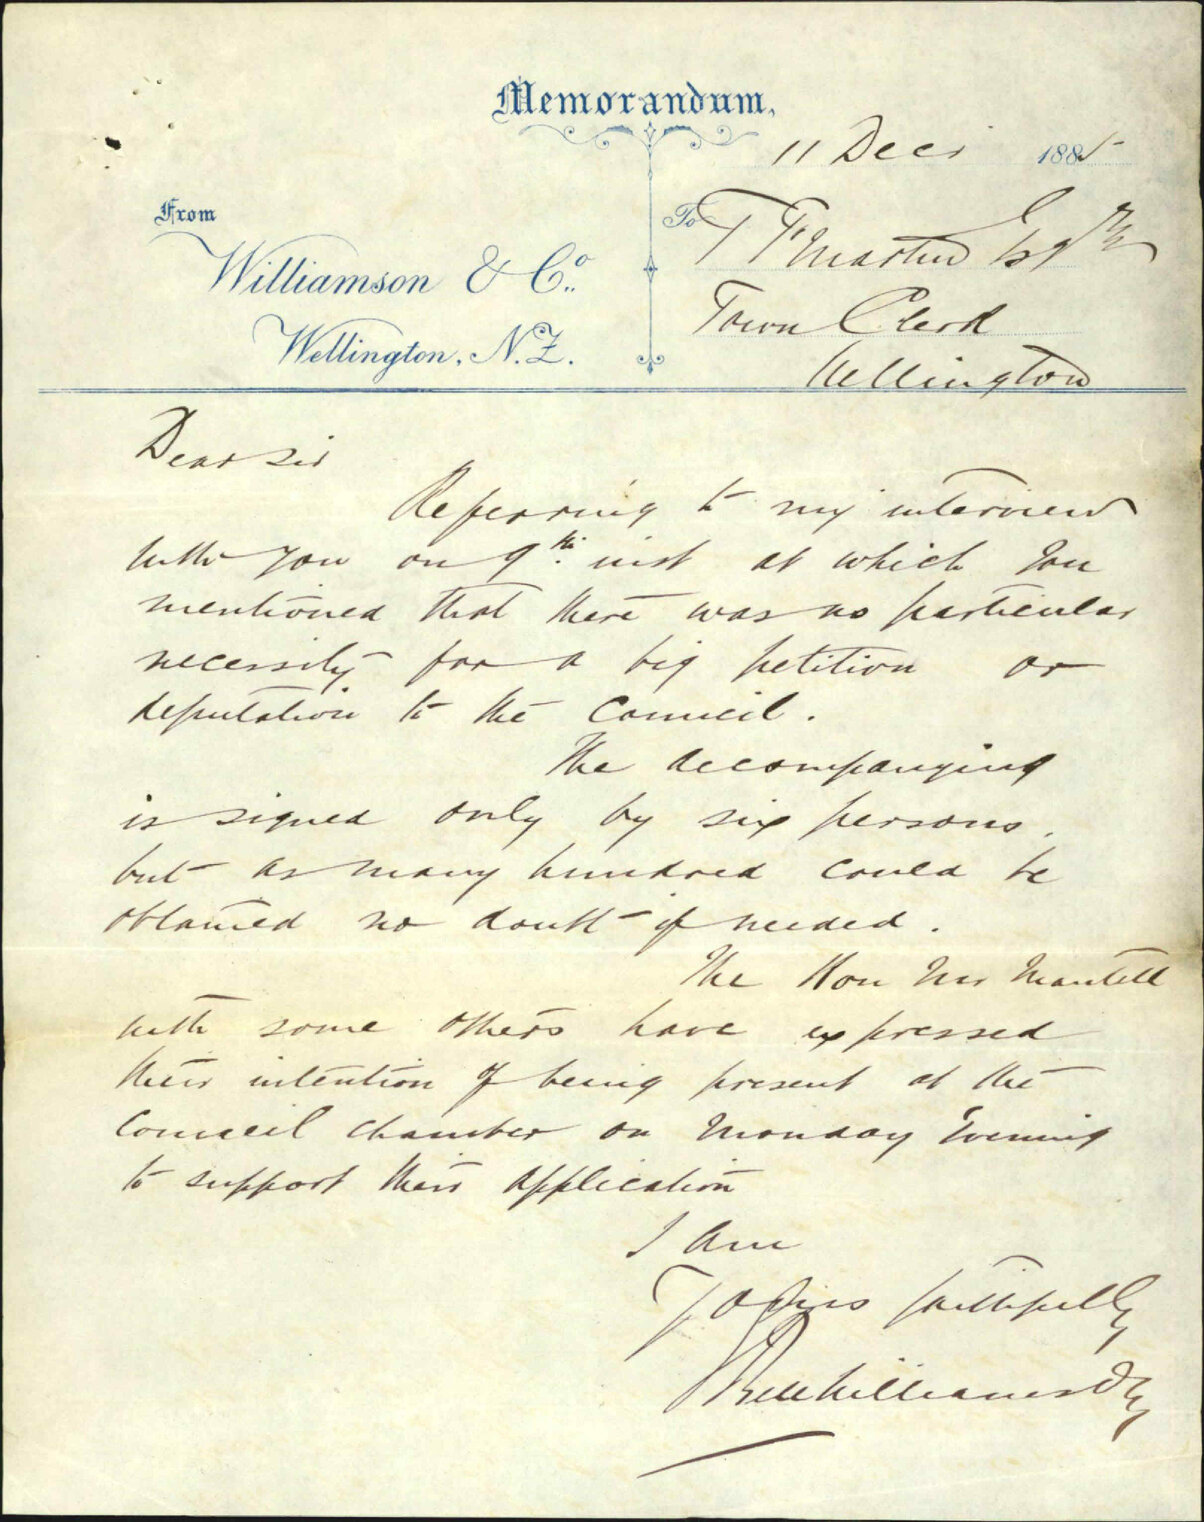 Memorandum,
11 Decr 1885
From
Williamson & Co.
Wellington, N.Z.
To T F Martin Esqre
Town Clerk
Wellington
Dear Sir
Referring to my interview
with you on 9th inst at which you
mentioned that there was no particular
necessity for a big petition or
deputation to the Council.
The accompanying
is signed only by six persons.
but as many hundred could be
obtained no doubt if needed.
The Hon Mr Mantell
with some others have expressed
their intention of being present at the
Council chamber on Monday Evening
to support their application
I am
Yours faithfully
Williamson